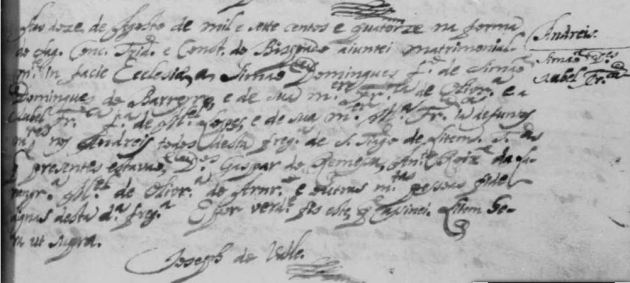 Aos doze de Agosto de mil e sete centos e quatorze na forma
do Sag. Conc. Trid. e Const. do Bispado ajuntei matrimonial
m.te in facie Ecclesiæ, a Simaõ Domingues f.º de Simaõ
Domingues do Barreyro, e de sua m.er de Oliv.ra e a
Isabel Fr.ª f.ª de M.el Lopes, e de sua m.er M.ª Fr.ª defuntos
m.res nos Andreis todos desta freg.ª de S. Tiago de Litem, S.
q presentes estavaõ, D.os Gaspar de Ant.º da
M.el de Oliv.ra do e outras m.tas pessoas fide
dignas desta d.ª freg.ª E por verd.e fis este, q asinei. Litem
ut supra.
Joseph do Valle.
Andreis.
Simaõ
Isabel Fr.ª